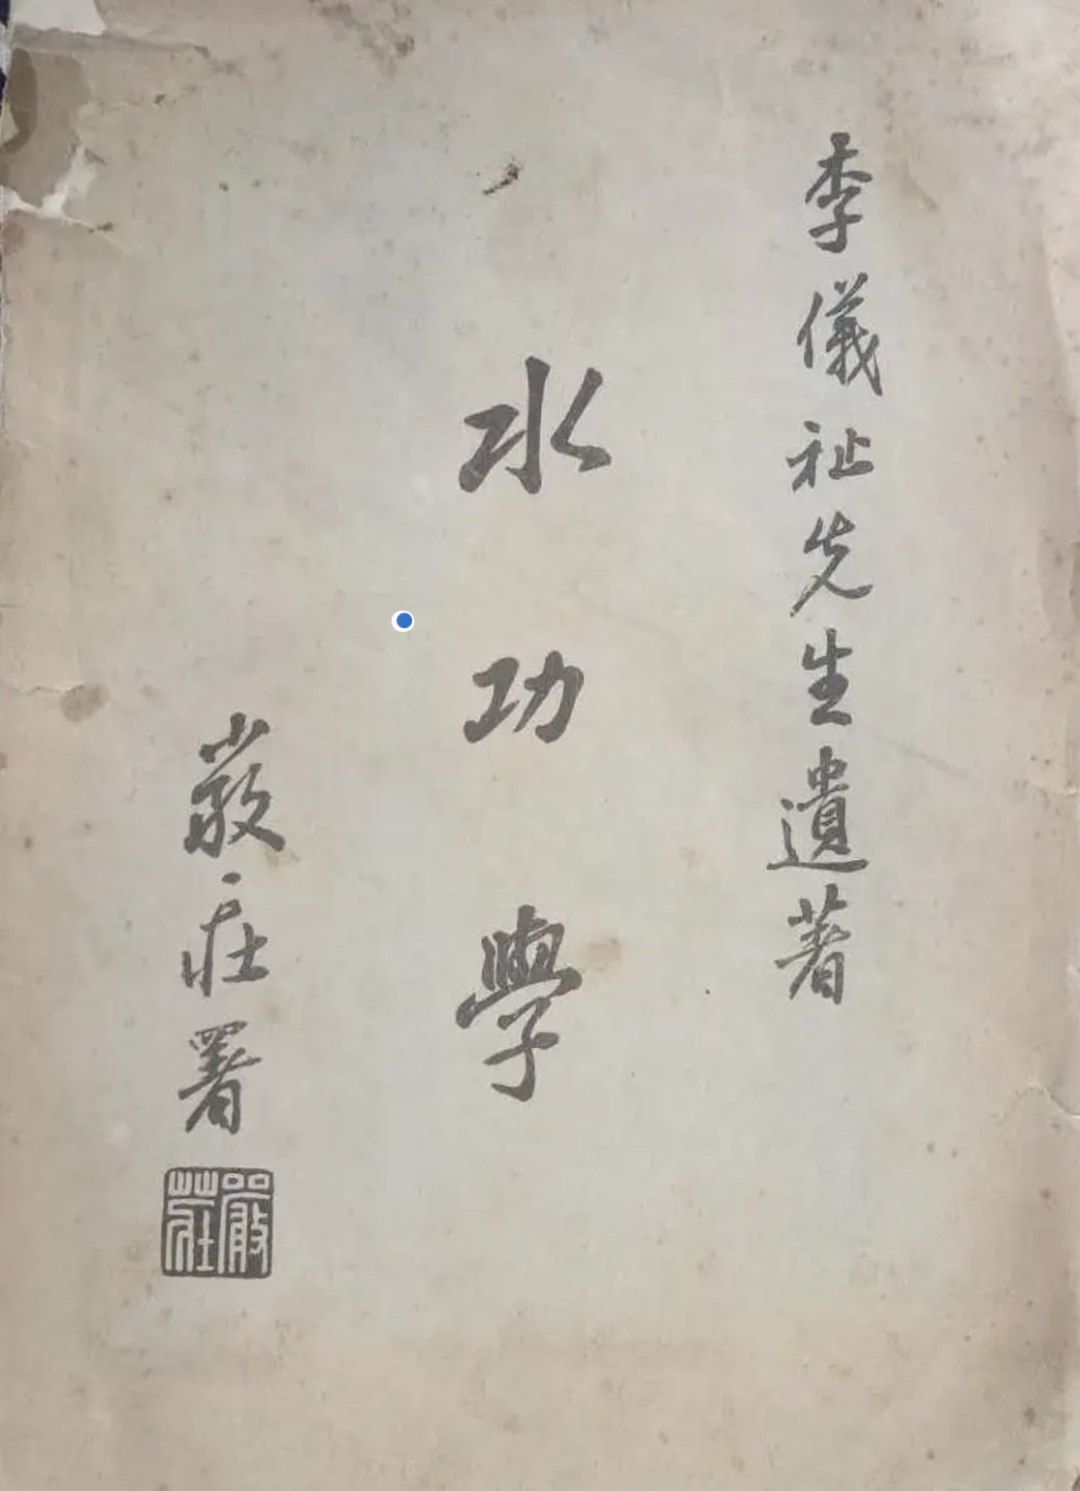 李儀祉先生遺著
水功學
嚴庄署
嚴莊